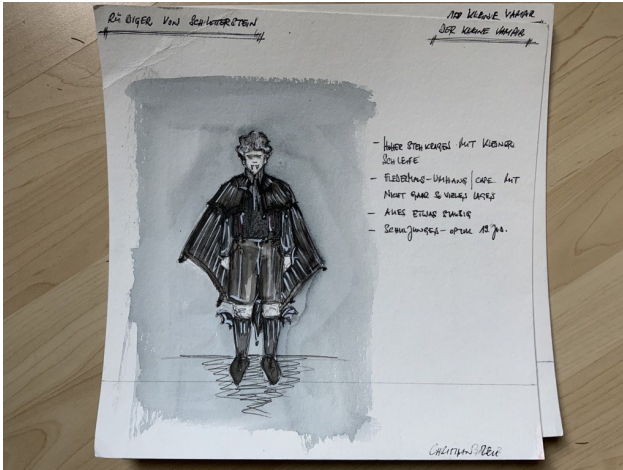 RÜDIGER VON SCHLOTTERSTEIN
KLEINE VAMPIR
DER KLEINE VAMPIR
- HOHER STEHKRAGEN MIT KLEINER
SCHLEIFE
- FLEDERMAUS-UMHANG / CAPE MIT
NICHT GAR SO VIELEN LAGEN
- ALLES ETWAS STAUBIG
- SCHULJUNGEN-OPTIK 19. Jhd.